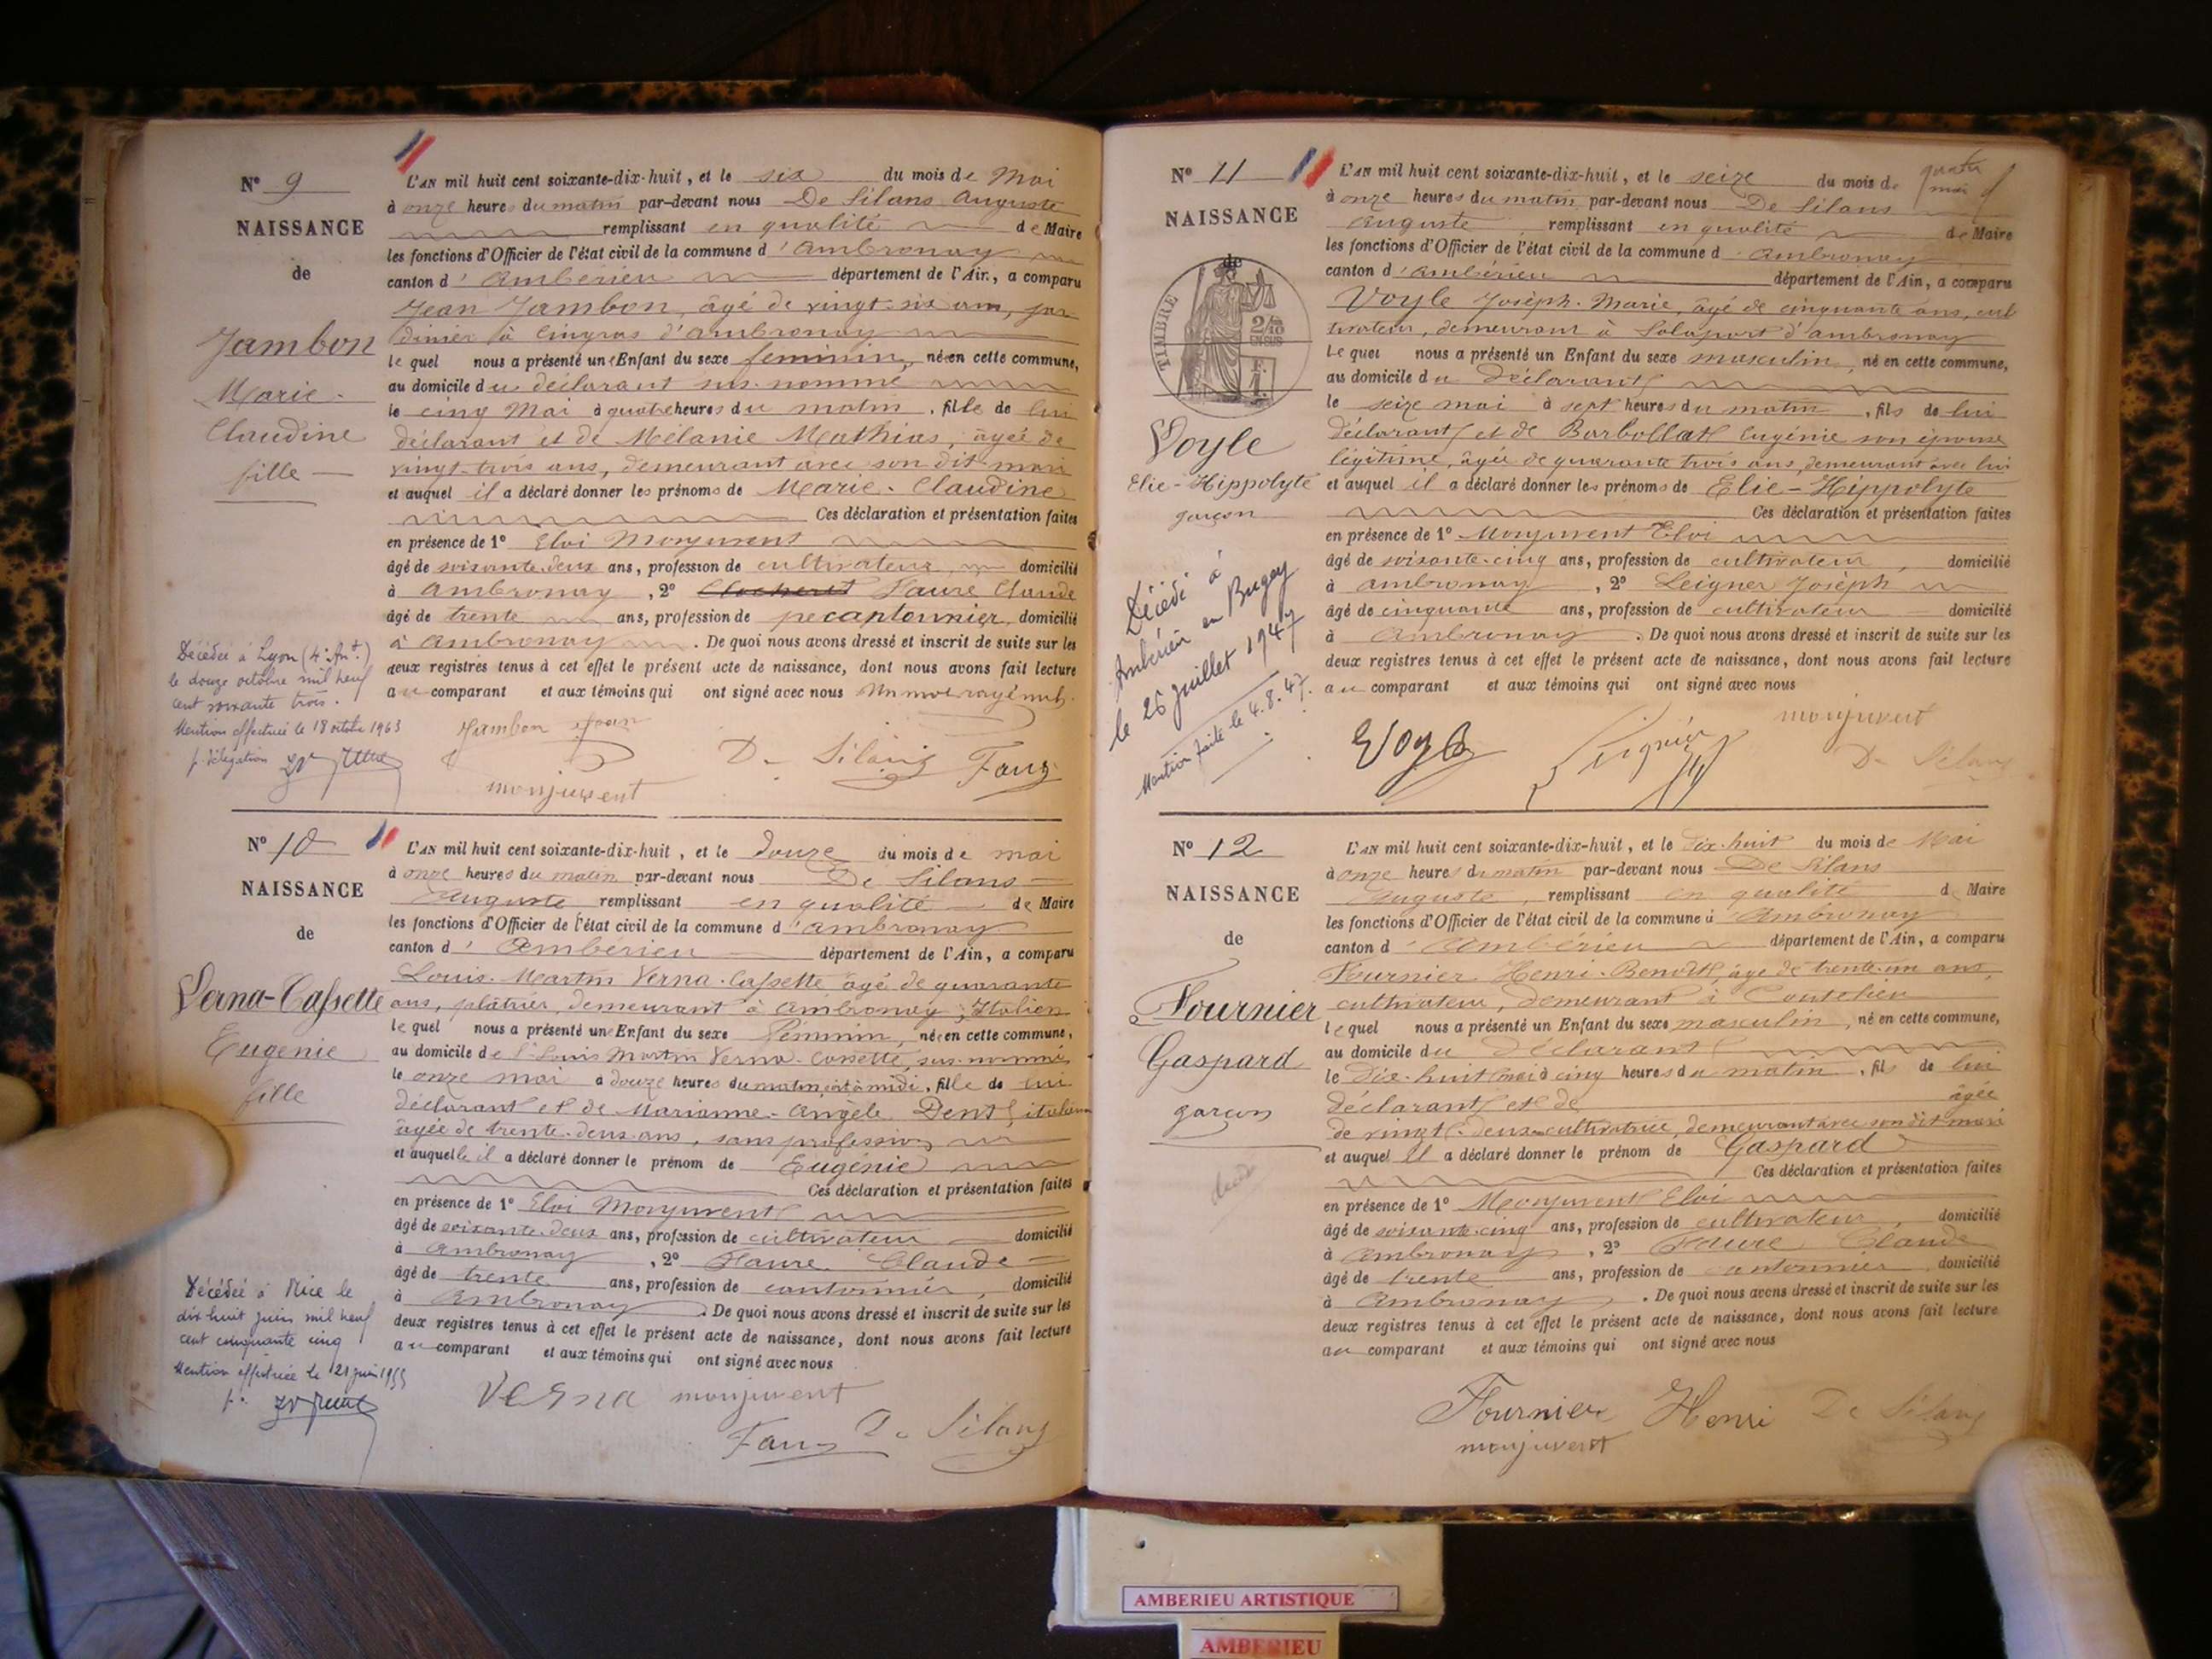 N° 9
NAISSANCE
de
Jambon
Marie-
Claudine
fille
L'AN mil huit cent soixante-dix-huit, et le six du mois de Mai
à onze heures du matin par-devant nous De Silans Auguste
remplissant en qualité de Maire
les fonctions d'Officier de l'état civil de la commune d'Ambronay
canton d'Ambérieu département de l'Ain, a comparu
Jean Jambon, âgé de vingt-six ans, jar
dinier à d'ambronay
lequel nous a présenté une Enfant du sexe feminin, née en cette commune,
au domicile du déclarant sus-nommé
le cinq Mai à quatre heures du matin, fille de lui
déclarant et de Mélanie Mathias, âgée de
vingt-trois ans, demeurant avec son dit mari
et auquel il a déclaré donner les prénoms de Marie-Claudine
Ces déclaration et présentation faites
en présence de 1° Eloi Monjuvent
âgé de soixante-deux ans, profession de cultivateur, domicilié
à Ambronay, 2° Faure Claude
âgé de trente ans, profession de cantonnier, domicilié
à Ambronay. De quoi nous avons dressé et inscrit de suite sur les
deux registres tenus à cet effet le présent acte de naissance, dont nous avons fait lecture
au comparant et aux témoins qui ont signé avec nous Un mot rayé nul.
Jambon Jean
De Silans Faure
monjuvent
Décédée à Lyon (4e Art.)
le douze octobre mil neuf
cent soixante trois.
Mention effectuée le 18 octobre 1963
p. délégation
N° 10
NAISSANCE
de
Verna-Cassette
Eugénie
fille
L'AN mil huit cent soixante-dix-huit, et le douze du mois de mai
à onze heures du matin par-devant nous De Silans
Auguste remplissant en qualité de Maire
les fonctions d'Officier de l'état civil de la commune d'ambronay
canton d'Ambérieu département de l'Ain, a comparu
Louis-Martin Verna-Cassette âgé de quarante
ans, plâtrier, demeurant à Ambronay, Italien
lequel nous a présenté une Enfant du sexe féminin, née en cette commune,
au domicile de Louis Martin Verna-Cassette, sus-nommé
le onze mai à douze heures du matin, fille de lui
déclarant et de Marianne-Angèle Dent, italienne
âgée de trente-deux ans, sans profession
et auquelle il a déclaré donner le prénom de Eugénie
Ces déclaration et présentation faites
en présence de 1° Eloi Monjuvent
âgé de soixante-deux ans, profession de cultivateur domicilié
à Ambronay, 2° Faure Claude
âgé de trente ans, profession de cantonnier, domicilié
à Ambronay. De quoi nous avons dressé et inscrit de suite sur les
deux registres tenus à cet effet le présent acte de naissance, dont nous avons fait lecture
au comparant et aux témoins qui ont signé avec nous
Verna monjuvent
Faure De Silans
Décédée à Nice le
dix huit juin mil neuf
cent cinquante cinq
Mention effectuée le 21 juin 1955
p.
N° 11
NAISSANCE
de
TIMBRE
2/10
EN SUS
Voyle
Elie-Hippolyte
garçon
L'AN mil huit cent soixante-dix-huit, et le seize du mois de mai
à onze heures du matin par-devant nous De Silans
Auguste, remplissant en qualité de Maire
les fonctions d'Officier de l'état civil de la commune d'ambronay
canton d'ambérieu département de l'Ain, a comparu
Voyle Joseph-Marie, âgé de cinquante ans, cul
tivateur, demeurant à Salaport d'ambronay
Lequel nous a présenté un Enfant du sexe masculin, né en cette commune,
au domicile du Déclarant
le seize mai à sept heures du matin, fils de lui
déclarant et de Barbollat Eugénie son épouse
légitime, âgée de quarante trois ans, demeurant avec lui
et auquel il a déclaré donner les prénoms de Elie-Hippolyte
Ces déclaration et présentation faites
en présence de 1° Monjuvent Eloi
âgé de soixante-cinq ans, profession de cultivateur, domicilié
à ambronay, 2° Leigner Joseph
âgé de cinquante ans, profession de cultivateur domicilié
à Ambronay. De quoi nous avons dressé et inscrit de suite sur les
deux registres tenus à cet effet le présent acte de naissance, dont nous avons fait lecture
au comparant et aux témoins qui ont signé avec nous
monjuvent
De Silans
Décédé à
Ambérieu en Bugey
le 26 juillet 1947
Mention faite le 4.8.47.
N° 12
NAISSANCE
de
Fournier
Gaspard
garçon
L'AN mil huit cent soixante-dix-huit, et le dix-huit du mois de Mai
à onze heures du matin par-devant nous De Silans
Auguste, remplissant en qualité de Maire
les fonctions d'Officier de l'état civil de la commune d'Ambronay
canton d'Ambérieu département de l'Ain, a comparu
Fournier Henri-Benoit, âgé de trente-un ans,
cultivateur, demeurant à Coutelieu
lequel nous a présenté un Enfant du sexe masculin, né en cette commune,
au domicile du Déclarant
le Dix-huit mai à cinq heures du matin, fils de lui
déclarant et de âgée
de vingt-deux cultivatrice, demeurant avec son dit mari
et auquel il a déclaré donner le prénom de Gaspard
Ces déclaration et présentation faites
en présence de 1° Monjuvent Eloi
âgé de soixante-cinq ans, profession de cultivateur, domicilié
à Ambronay, 2° Faure Claude
âgé de trente ans, profession de cantonnier domicilié
à Ambronay. De quoi nous avons dressé et inscrit de suite sur les
deux registres tenus à cet effet le présent acte de naissance, dont nous avons fait lecture
au comparant et aux témoins qui ont signé avec nous
Fournier Henri De Silans
monjuvent
AMBERIEU ARTISTIQUE
AMBERIEU